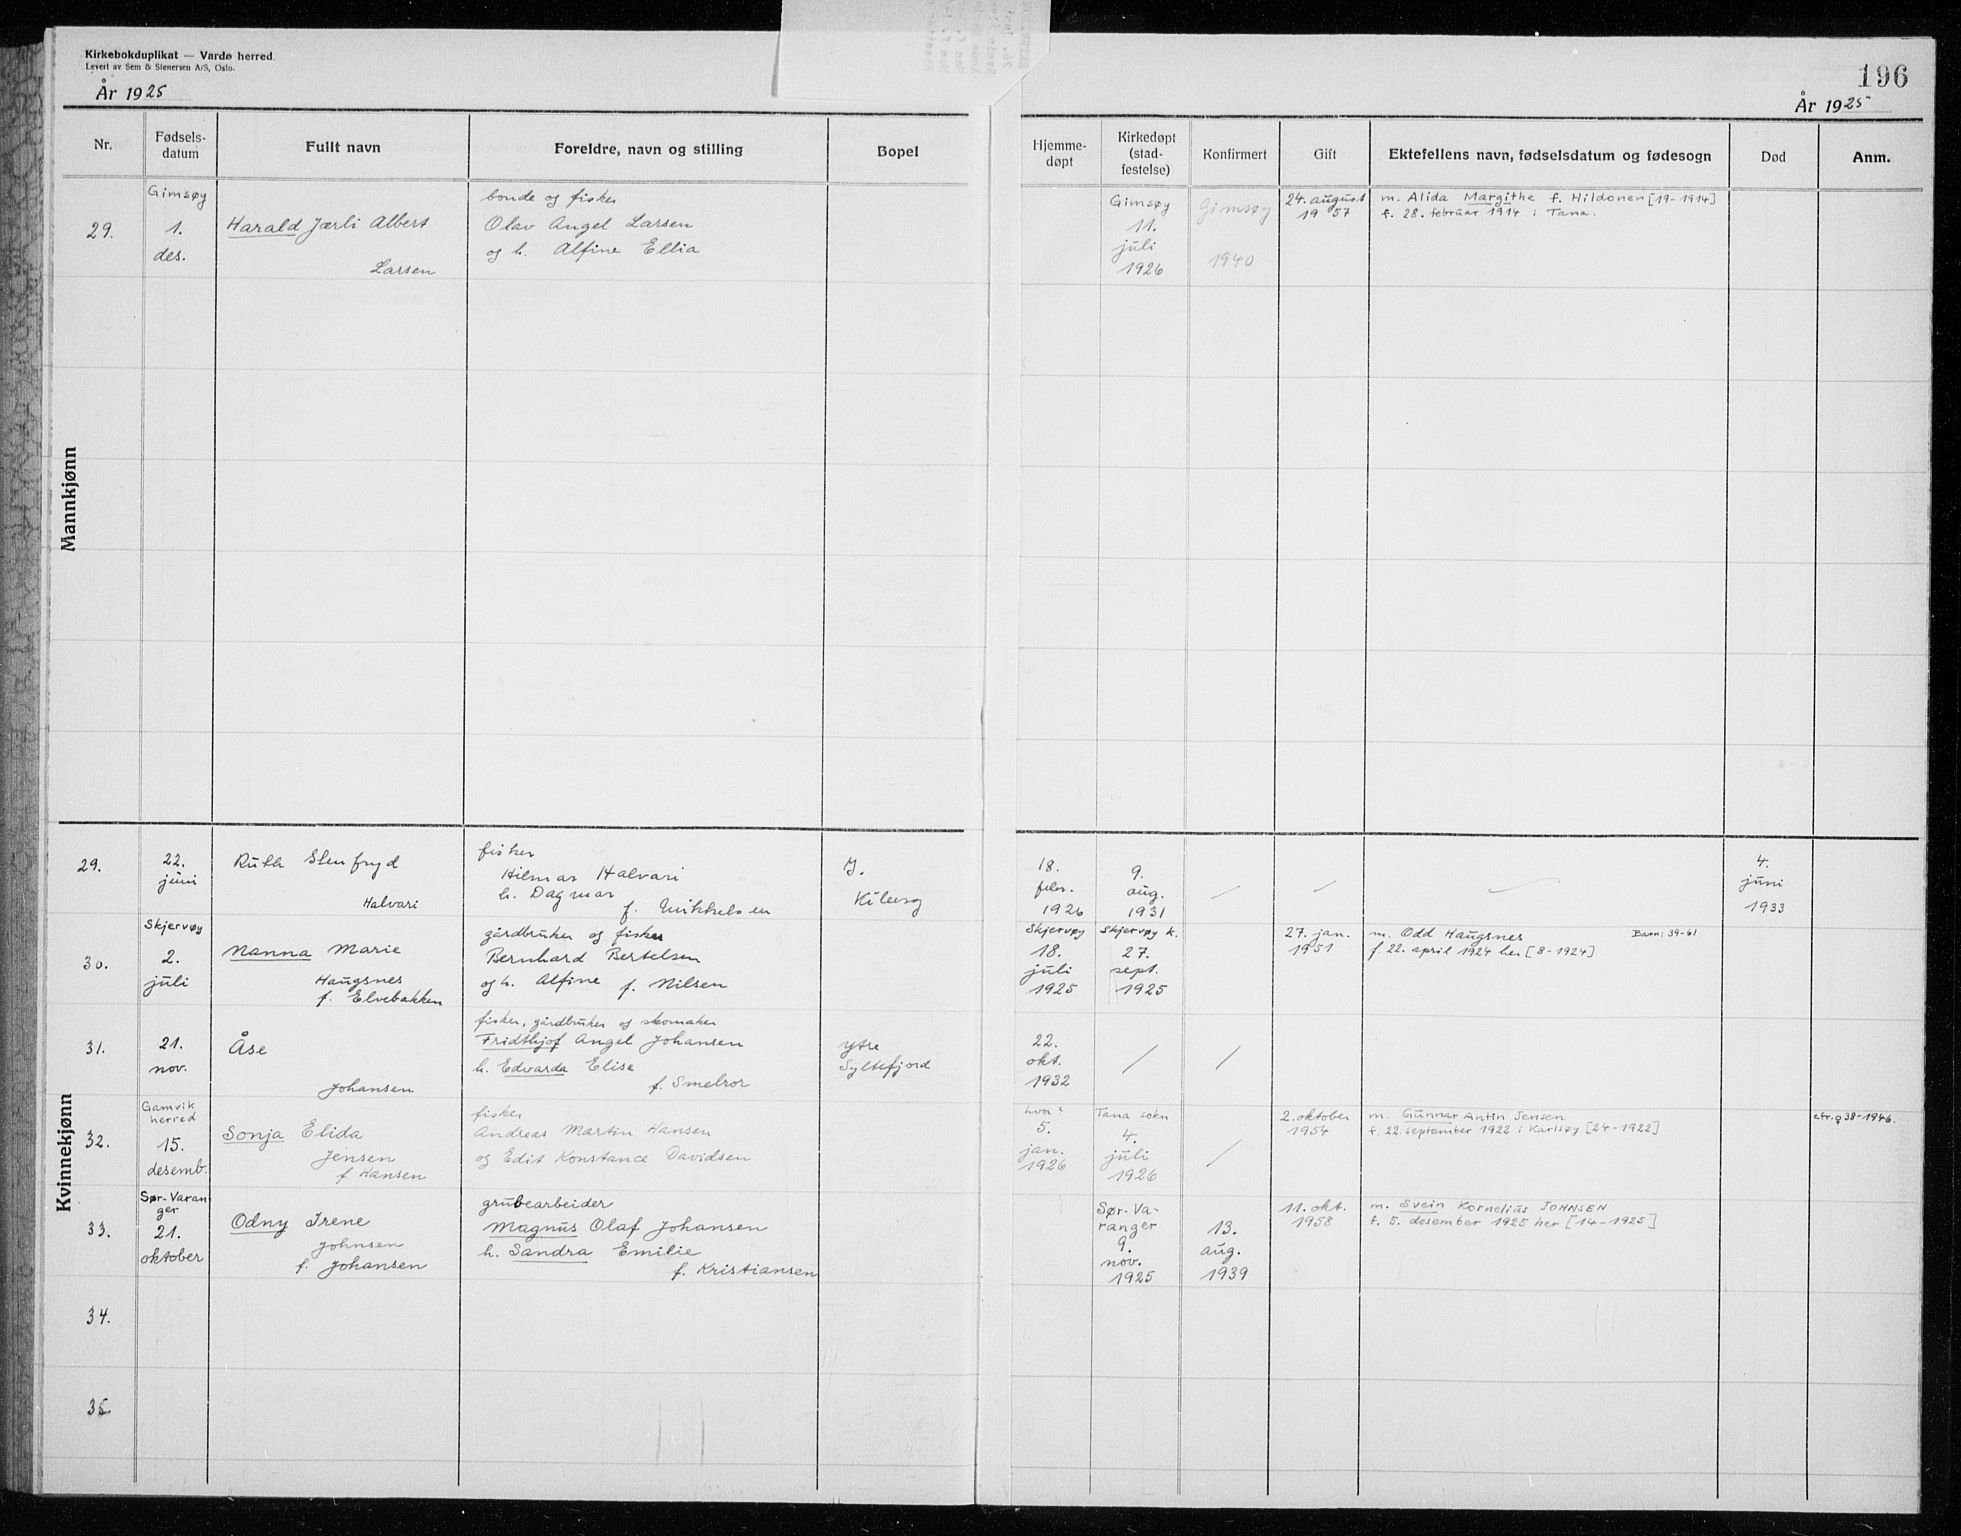 Kirkebokduplikat — Vardø herred.
Levert av Sem & Stenersen A/S, Oslo.
År 1925
196
År 1925
Nr.
Fødsels-
datum
Fullt navn
Foreldre, navn og stilling
Bopel
Hjemme-
døpt
Kirkedøpt
(stad-
festelse)
Konfirmert
Gift
Ektefellens navn, fødselsdatum og fødesogn
Død
Anm.
Mannkjønn
29.
Gimsøy
1.
des.
Harald Jærli Albert
Larsen
bonde og fisker
Olav Angel Larsen
og h. Alfine Ellia
Gimsøy
11.
juli
1926
Gimsøy
1940
24. august
1957
m. Alida Margithe f. Hildonen [19-1914]
f. 28. februar 1914 i Tana.
Kvinnekjønn
29.
22.
juni
Ruth Stenfryd
Halvari
fisker
Hilmar Halvari
h. Dagmar
f. Mikkelsen
Y.
Kiberg
18.
febr.
1926
9.
aug.
1931
4.
juni
1933
30.
Skjervøy
2.
juli
Nanna Marie
Haugsnes
f. Elvebakken
gårdbruker og fisker
Bernhard Bertelsen
og h. Alfine f. Nilsen
Skjervøy
18.
juli
1925
Skjervøy k.
27.
sept.
1925
27. jan.
1951
m. Odd Haugsnes
Barn: 39-61
f. 22. april 1924 her [8-1924]
31.
21.
nov.
Åse
Johansen
fisker, gårdbruker og skomaker
Fridthjof Angel Johansen
h. Edvarda Elise
f. Smelror
Ytre
Syltefjord
22.
okt.
1932
/
/
32.
Gamvik
herred
15.
desemb.
Sonja Elida
Jensen
f. Hansen
fisker
Andreas Martin Hansen
og Edit Konstance Davidsen
5.
jan.
1926
Tana sokn
4.
juli
1926
/
2. oktober
1954
m. Gunnar Antin Jensen
f. 22. september 1922 i Karlsøy [24-1922]
cfr. ♀ 38-1946.
33.
Sør-Varan
ger
21.
oktober
Odny Irene
Johnsen
f. Johansen
grubearbeider
Magnus Olaf Johansen
h. Sandra Emilie
f. Kristiansen
Sør-Va-
ranger
9.
nov.
1925
13.
aug.
1939
11. okt.
1958
m. Svein Kornelius JOHNSEN
f. 5. desember 1925 her [14-1925]
34.
35